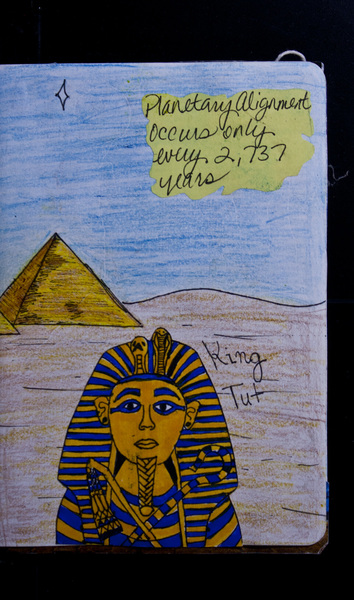 Planetary Alignment
Occurs only
every 2,737
years
King
Tut